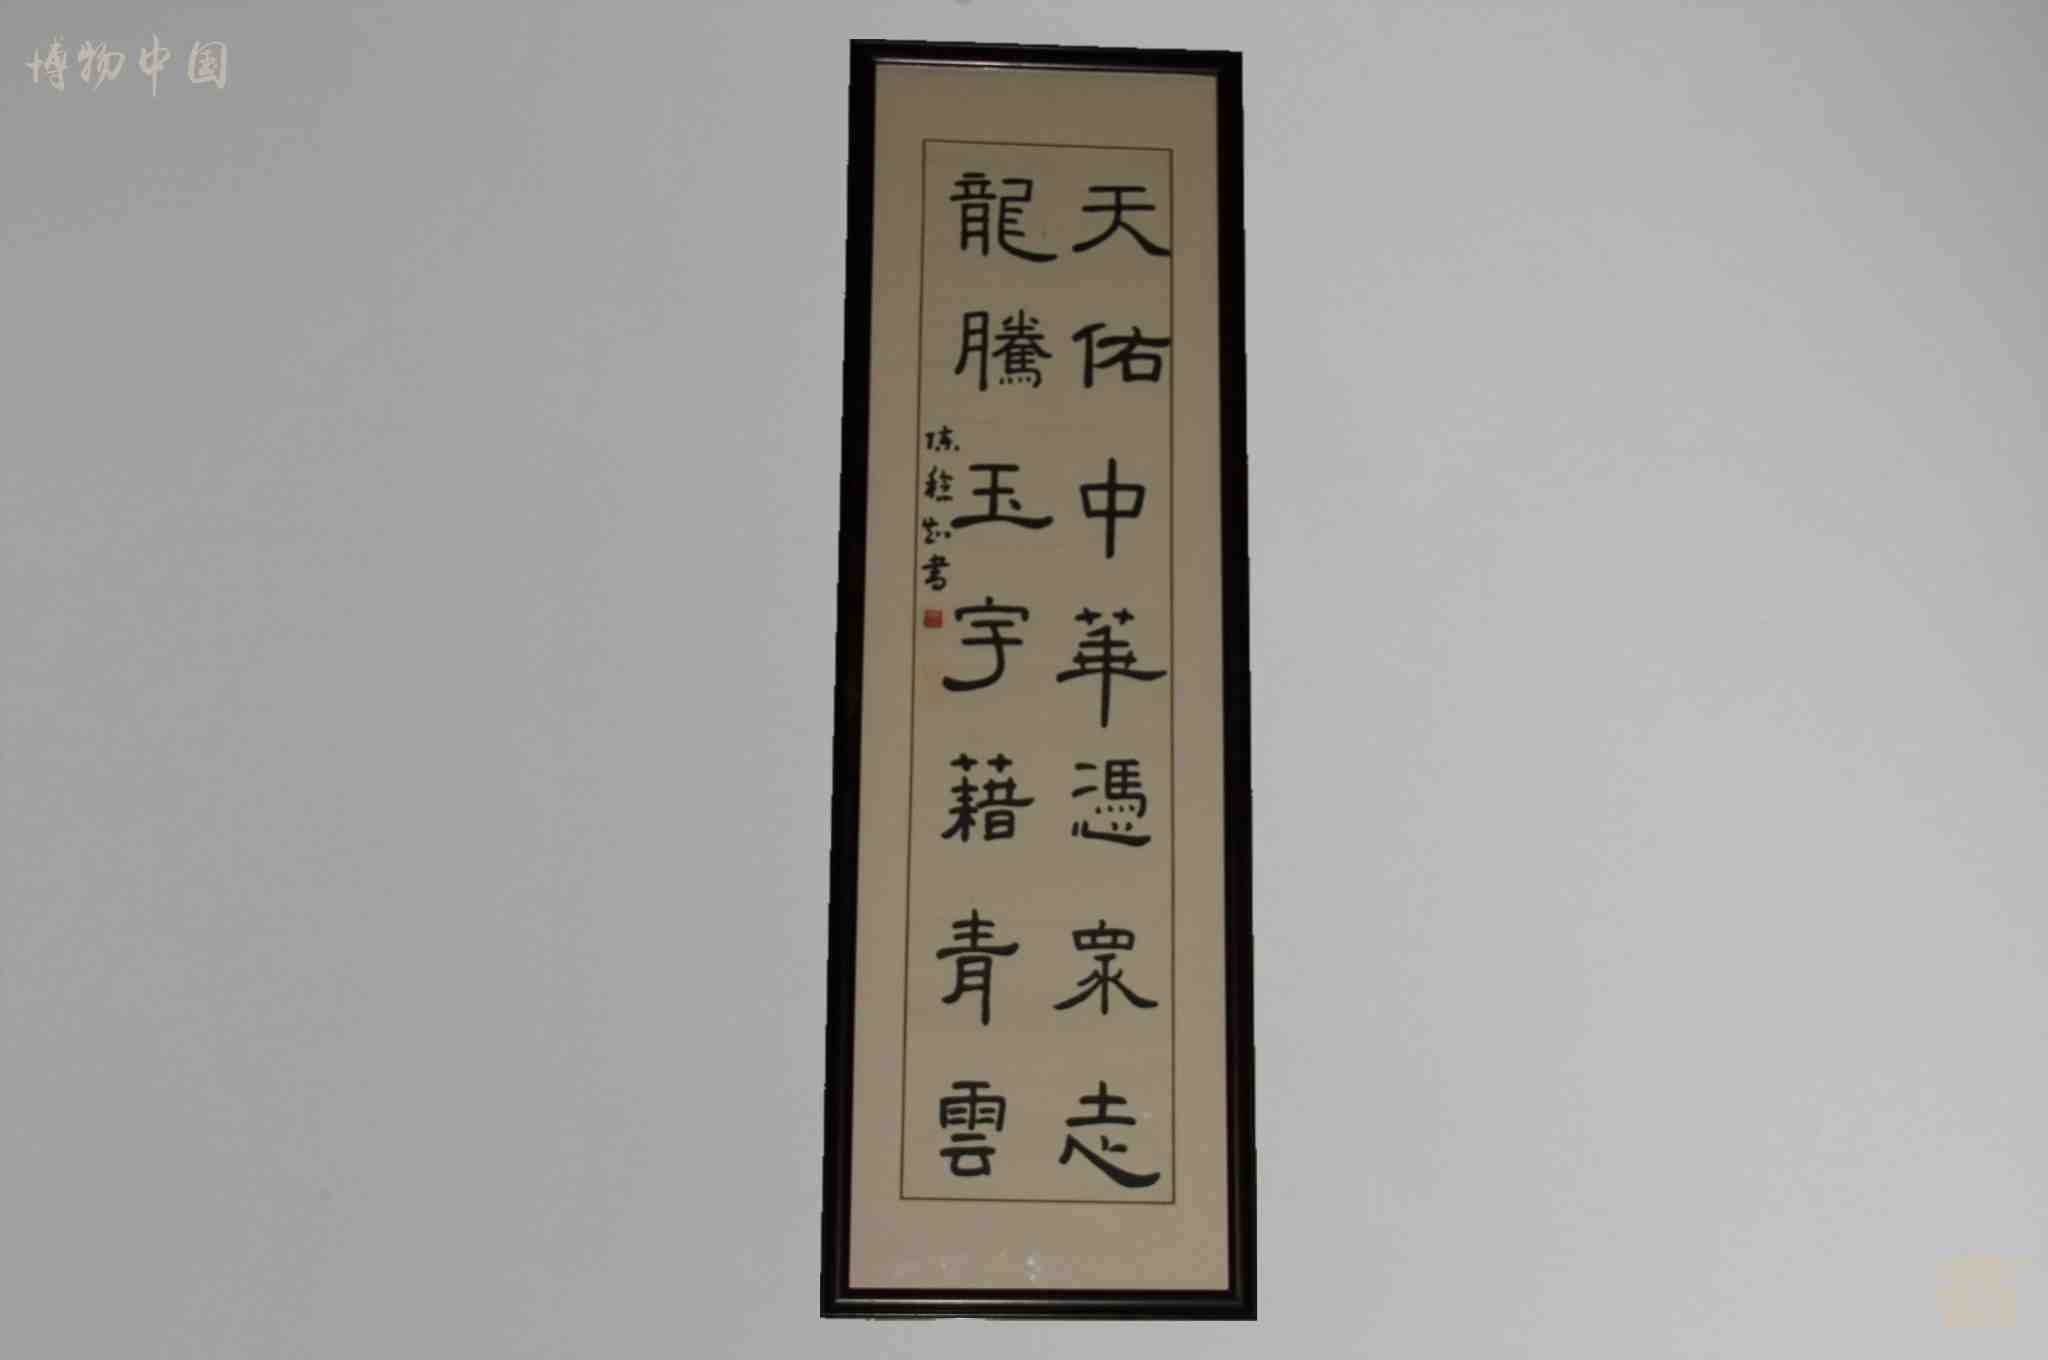 博物中国
天佑中華憑眾志
龍騰玉宇藉青雲
書